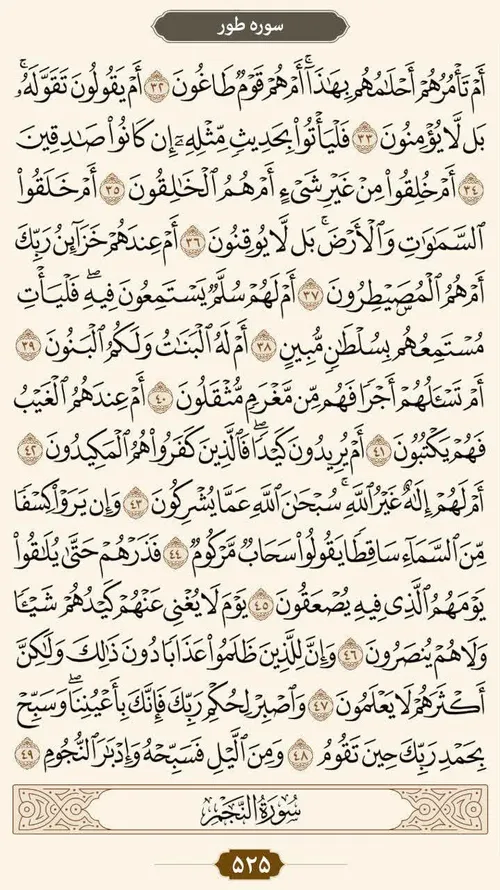 سوره طور
أَمْ تَأْمُرُهُمْ أَحْلَٰمُهُم بِهَٰذَآ ۚ أَمْ هُمْ قَوْمٌ طَاغُونَ ﴿٣٢﴾ أَمْ يَقُولُونَ تَقَوَّلَهُۥ ۚ
بَل لَّا يُؤْمِنُونَ ﴿٣٣﴾ فَلْيَأْتُوا۟ بِحَدِيثٍ مِّثْلِهِۦٓ إِن كَانُوا۟ صَٰدِقِينَ
﴿٣٤﴾ أَمْ خُلِقُوا۟ مِنْ غَيْرِ شَىْءٍ أَمْ هُمُ ٱلْخَٰلِقُونَ ﴿٣٥﴾ أَمْ خَلَقُوا۟
ٱلسَّمَٰوَٰتِ وَٱلْأَرْضَ ۚ بَل لَّا يُوقِنُونَ ﴿٣٦﴾ أَمْ عِندَهُمْ خَزَآئِنُ رَبِّكَ
أَمْ هُمُ ٱلْمُصَۣيْطِرُونَ ﴿٣٧﴾ أَمْ لَهُمْ سُلَّمٌ يَسْتَمِعُونَ فِيهِ ۖ فَلْيَأْتِ
مُسْتَمِعُهُم بِسُلْطَٰنٍ مُّبِينٍ ﴿٣٨﴾ أَمْ لَهُ ٱلْبَنَٰتُ وَلَكُمُ ٱلْبَنُونَ ﴿٣٩﴾
أَمْ تَسْـَٔلُهُمْ أَجْرًا فَهُم مِّن مَّغْرَمٍ مُّثْقَلُونَ ﴿٤٠﴾ أَمْ عِندَهُمُ ٱلْغَيْبُ
فَهُمْ يَكْتُبُونَ ﴿٤١﴾ أَمْ يُرِيدُونَ كَيْدًا ۖ فَٱلَّذِينَ كَفَرُوا۟ هُمُ ٱلْمَكِيدُونَ ﴿٤٢﴾
أَمْ لَهُمْ إِلَٰهٌ غَيْرُ ٱللَّهِ ۚ سُبْحَٰنَ ٱللَّهِ عَمَّا يُشْرِكُونَ ﴿٤٣﴾ وَإِن يَرَوْا۟ كِسْفًا
مِّنَ ٱلسَّمَآءِ سَاقِطًا يَقُولُوا۟ سَحَابٌ مَّرْكُومٌ ﴿٤٤﴾ فَذَرْهُمْ حَتَّىٰ يُلَٰقُوا۟
يَوْمَهُمُ ٱلَّذِى فِيهِ يُصْعَقُونَ ﴿٤٥﴾ يَوْمَ لَا يُغْنِى عَنْهُمْ كَيْدُهُمْ شَيْـًٔا
وَلَا هُمْ يُنصَرُونَ ﴿٤٦﴾ وَإِنَّ لِلَّذِينَ ظَلَمُوا۟ عَذَابًا دُونَ ذَٰلِكَ وَلَٰكِنَّ
أَكْثَرَهُمْ لَا يَعْلَمُونَ ﴿٤٧﴾ وَٱصْبِرْ لِحُكْمِ رَبِّكَ فَإِنَّكَ بِأَعْيُنِنَا ۖ وَسَبِّحْ
بِحَمْدِ رَبِّكَ حِينَ تَقُومُ ﴿٤٨﴾ وَمِنَ ٱلَّيْلِ فَسَبِّحْهُ وَإِدْبَٰرَ ٱلنُّجُومِ ﴿٤٩﴾
سُورَةُ النَّجْمِ
۵۲۵